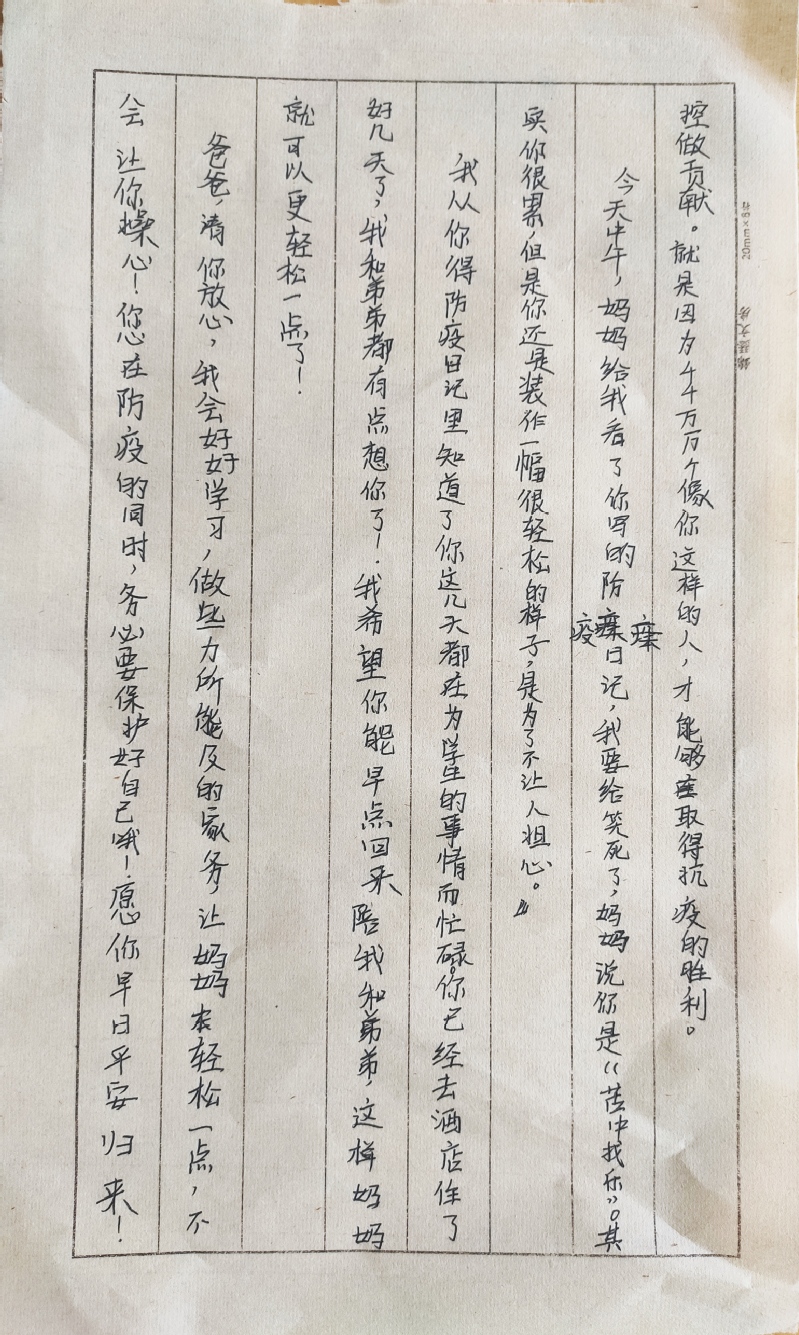 控做贡献。就是因为千千万万个像你这样的人，才能够取得抗疫的胜利。
今天中午，妈妈给我看了你写的防疫日记，我要给笑死了，妈妈说你是“苦中找乐”。其
实你很累，但是你还是装作一幅很轻松的样子，是为了不让人担心。”
我从你得防疫日记里知道了你这几天都在为学生的事情而忙碌。你已经去酒店住了
好几天了，我和弟弟都有点想你了！我希望你能早点回来陪我和弟弟，这样妈妈
就可以更轻松一点了！
爸爸，请你放心，我会好好学习，做些力所能及的家务，让妈妈轻松一点，不
会让你操心！您在防疫的同时，务必要保护好自己哦！愿你早日平安归来！
20mm×8行